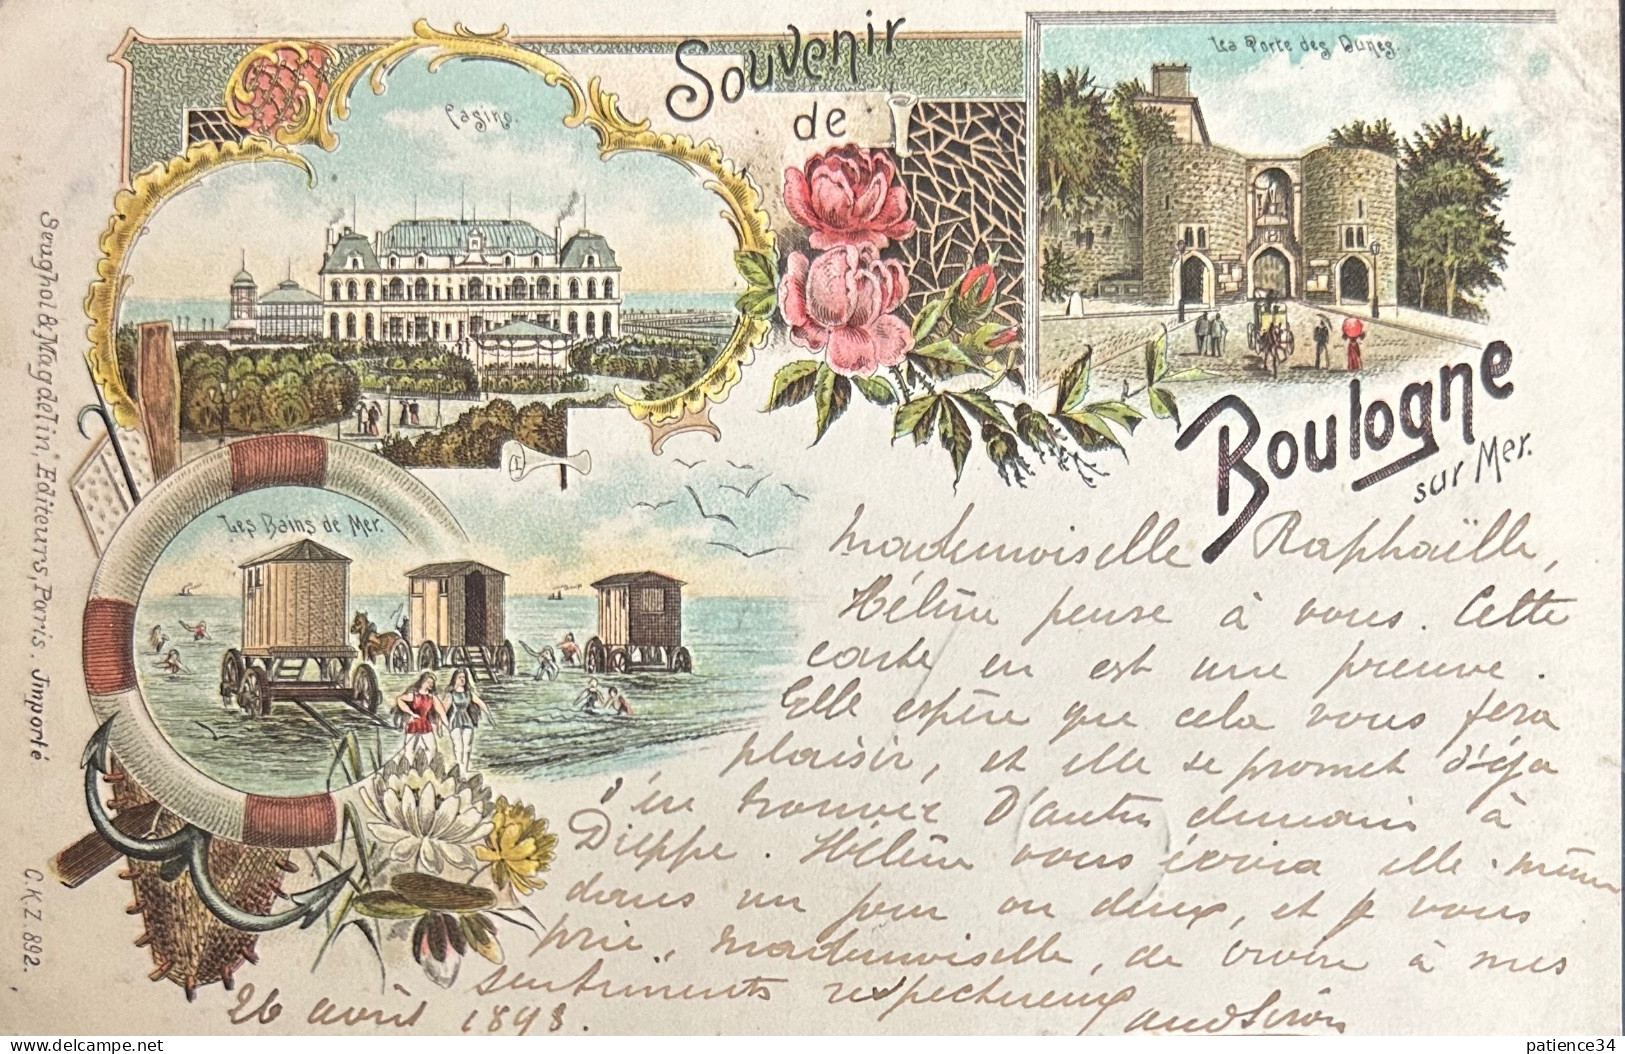 Souvenir
de
Boulogne
sur Mer.
Casino.
La Porte des Dunes.
Les Bains de Mer.
Seughol & Magdelin, Editeurs, Paris. Importé
C.K.Z. 892.
Mademoiselle Raphaëlle,
Hélène pense à vous. Cette
carte en est une preuve.
Elle espère que cela vous fera
plaisir, et elle se promet déjà
d'en trouver d'autres demain à
Dieppe. Hélène vous écrira elle-même
dans un jour ou deux, et je vous
prie, mademoiselle, de croire à mes
sentiments respectueux
26 août 1898.
patience34
© delcampe.net